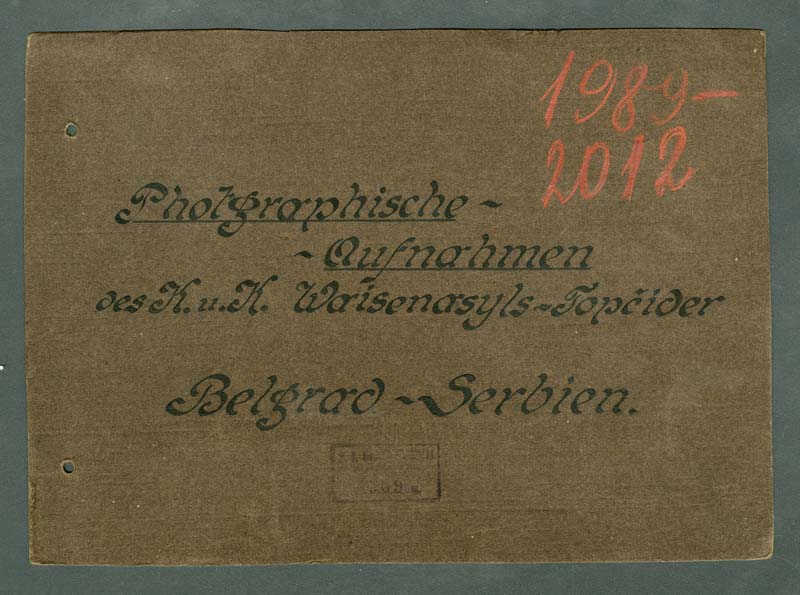 1989-
2012
Photgraphische-
-Aufnahmen
des K. u. K. Waisenasyls-Topčider
Belgrad-Serbien.